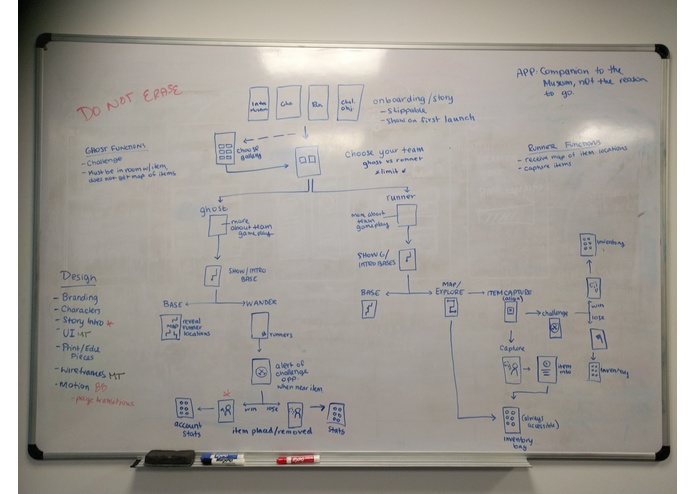 DO NOT ERASE
APP: Companion to the
Museum, not the reason
to go.
Intro
Museum
Cho
Run
Chal.
Obj.
onboarding/story
- skippable
- show on first launch
GHOST FUNCTIONS
- Challenge
- Must be in room w/item
does not get map of items
choose
gallery
choose your team
ghost vs runner
RUNNER FUNCTIONS
- receive map of item locations
- capture items
ghost
more
about team
gameplay
runner
more about
team
gameplay
SHOW/INTRO
BASE
SHOW G/
INTRO BASES
inventory
Design
- Branding
- Characters
- Story Intro
- UI MT
- Print/Edu
Pieces
- Wireframes MT
- Motion
- page transitions
BASE
WANDER
map
reveal
runner
locations
runners
BASE
MAP/
EXPLORE
ITEM CAPTURE
challenge
win
lose
capture
item
info
inventory
alert of
challenge
opp.
when near item
win
lose
account
stats
item placed/removed
stats
(always
accessible)
inventory
bag
EXPO